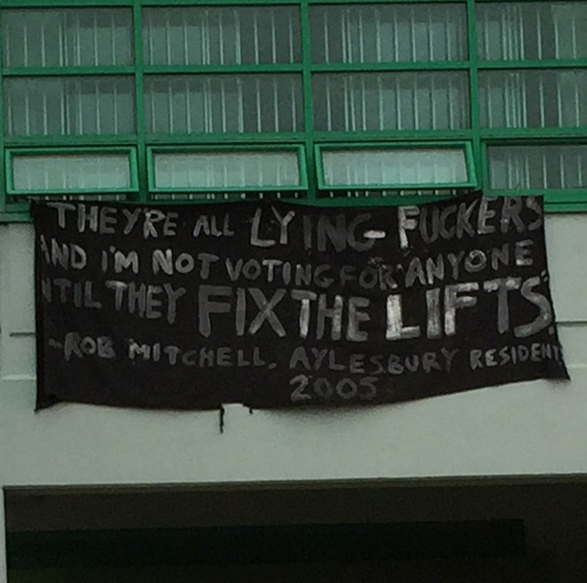 THEY'RE ALL LYING FUCKERS
AND I'M NOT VOTING FOR ANYONE
NTIL THEY FIX THE LIFTS."
~ROB MITCHELL, AYLESBURY RESIDENT
2005